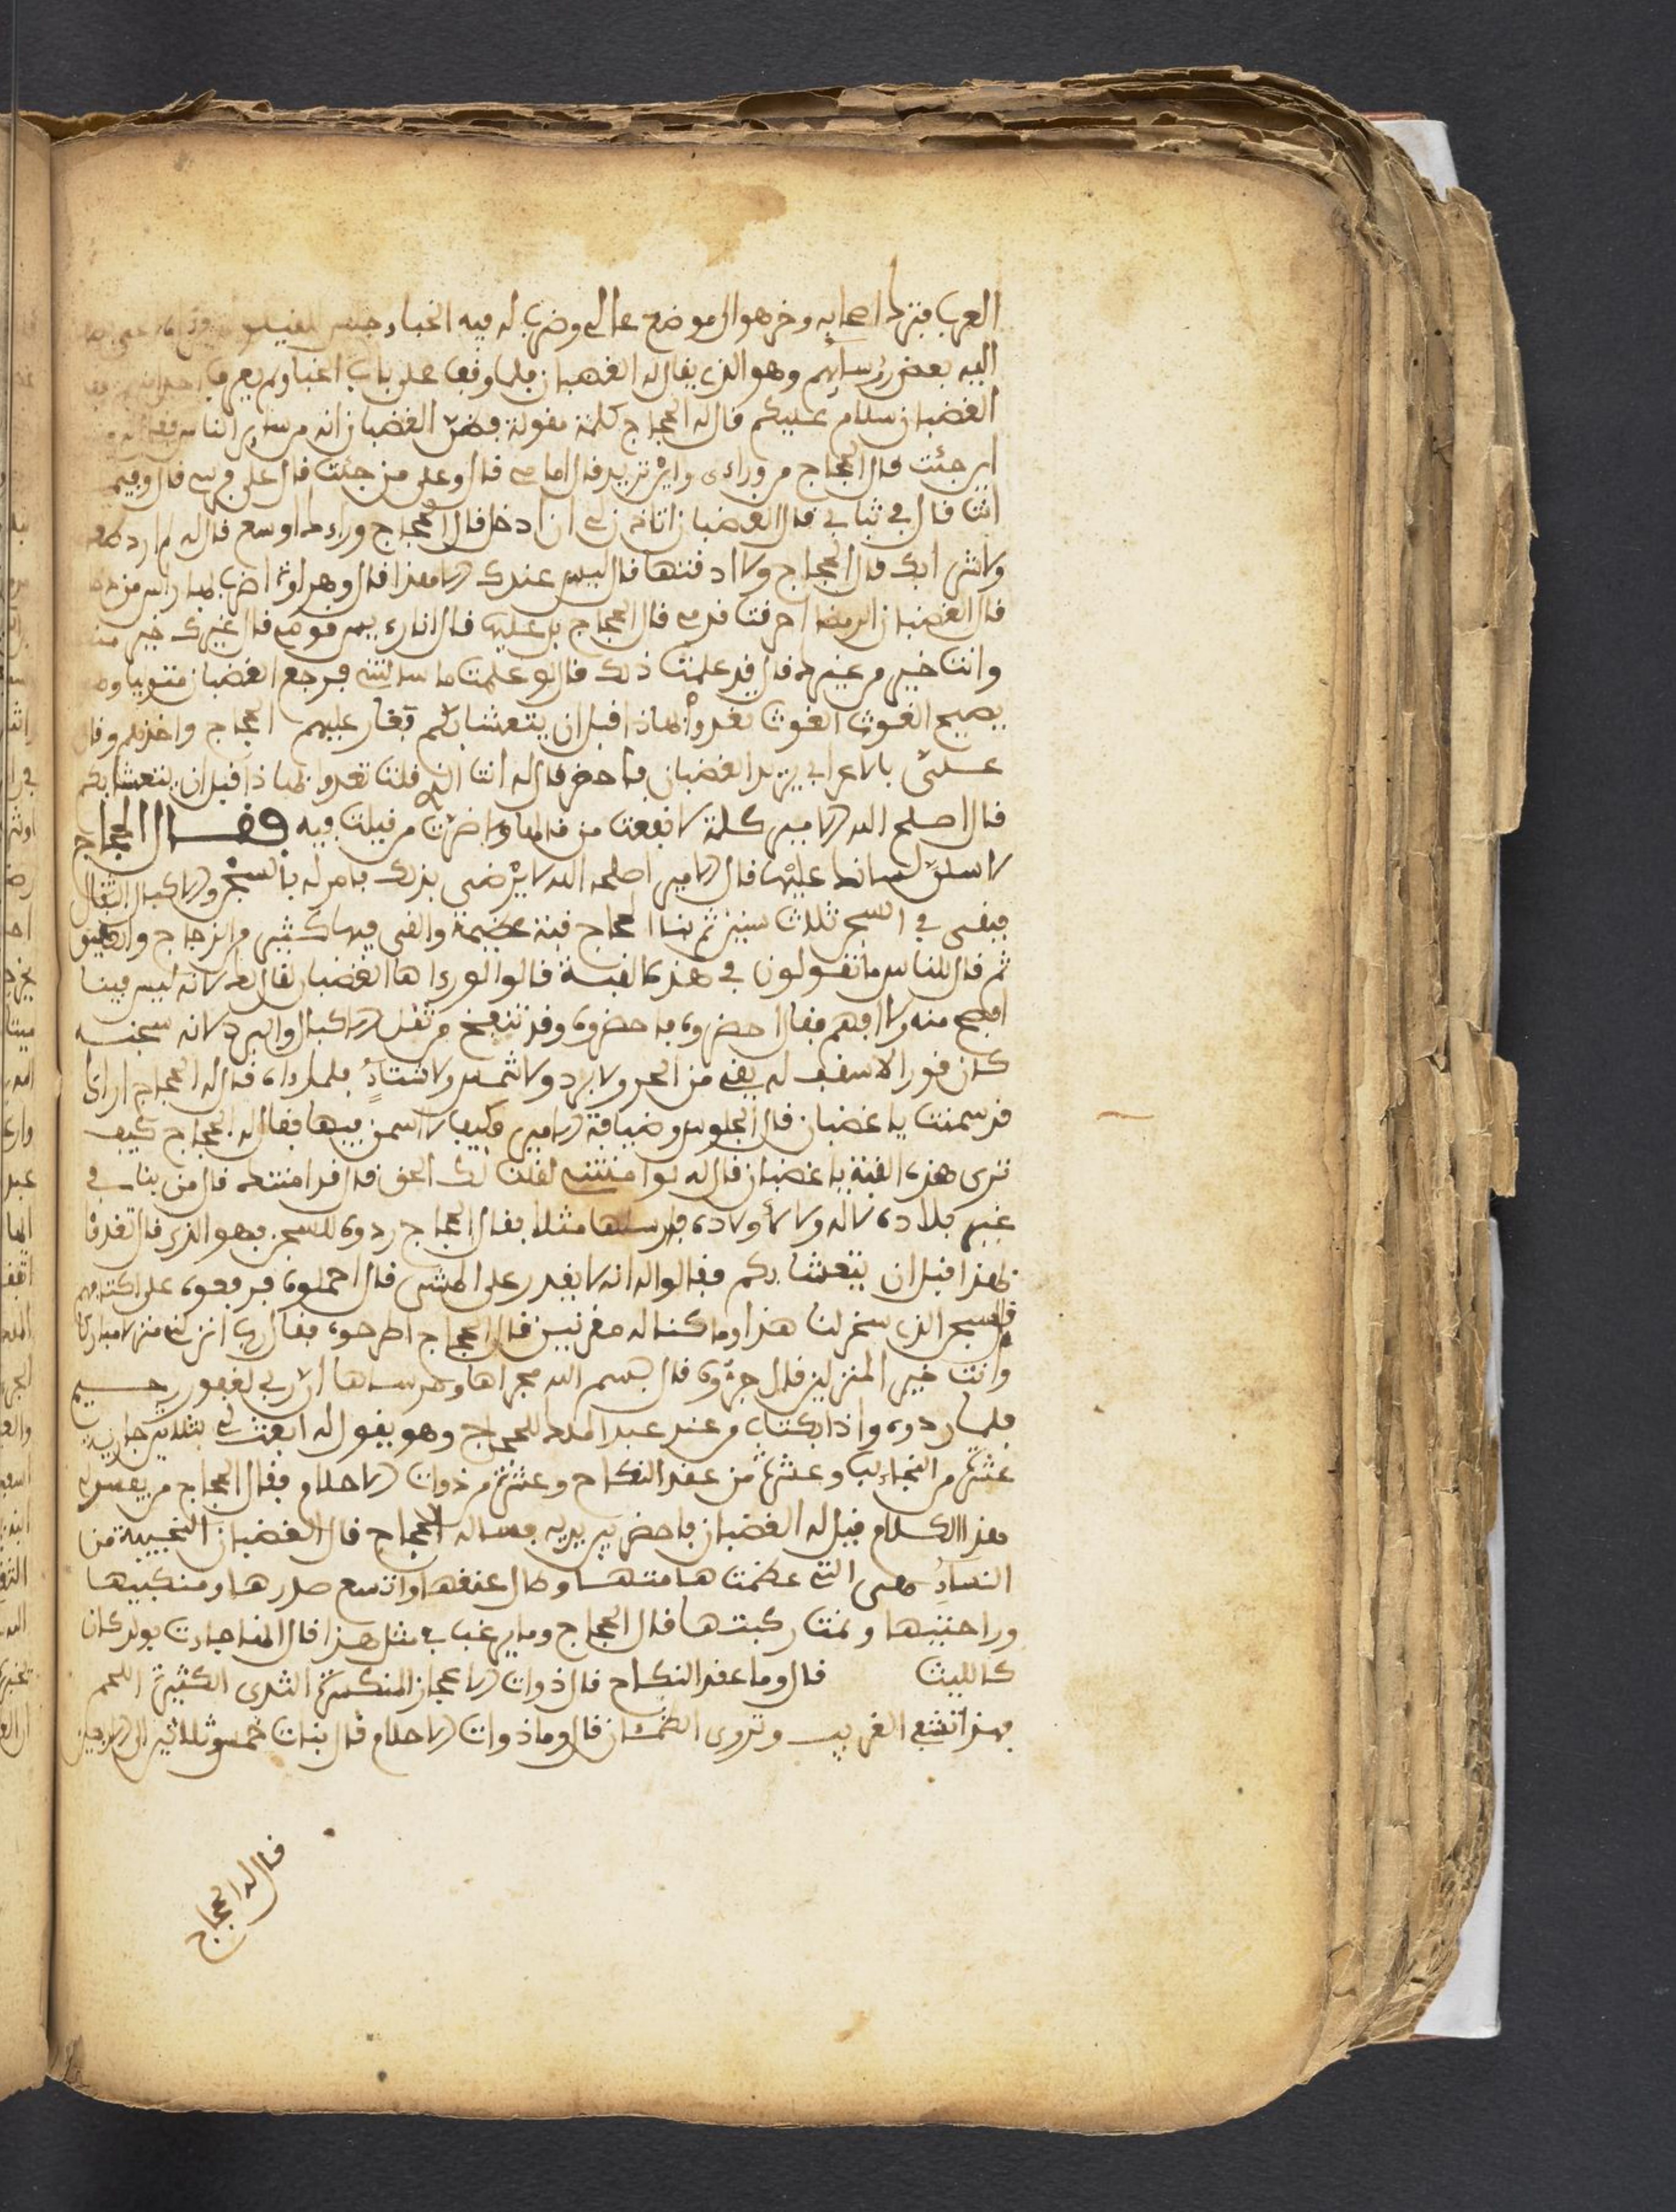 العرب فنزل اصحابه وخر هو الى موضع عالي وضرب له فيه الخباء
اليه بعض رؤسايهم وهو الذي يقال له الغضبان فلما وقف على باب الخبا ولم يعرف
الغضبان سلام عليكم قال له الحجاج كلمة مقولة فظن الغضبان انه من ساير الناس فقال له من
اين جئت قال الحجاج من وراءى واين تريد قال امامي قال وعلى من جئت قال على فرسي قال وفيم
انت قال في ثيابي قال الغضبان اتاذن لي ان ادخل قال الحجاج وراءك اوسع قال له لم ارد طعامك
ولا شرابك قال الحجاج ولا اذقتها قال ليس عندك الا هذا قال وهراوة اضرب بها راس من
قال الغضبان الرمضا احرقت قدمي قال الحجاج بل عليها قال انا رءيس قومي قال غيرك خير منك
وانت خير من غيرك قال قد علمت ذلك قال لو علمت ما سالتني فرجع الغضبان
يصيح الغوث الغوث تغدوا بهاذا قبل ان يتعشا بكم فغار عليهم الحجاج واخذهم وقال
علي بالاعرابي يريد الغضبان فاحضر قال له انت الذي قلت تغدوا بهاذا قبل ان يتعشا بكم
قال اصلح الله الامير كلمة لا نفعت من قالها ولا ضرت من قيلت فيه فقال الحجاج
لاسلن لسانك عليها قال الامير اصلحه الله لا يرضى بذلك فامر له بالسجن والاكبال الثقال
فبقى في السجن ثلاث سنين ثم بنا الحجاج قبة عظيمة والقى فيها كثير من الزجاج والعقيق
ثم قال للناس ما تقولون في هذه القبة قالوا لو رءاها الغضبان لقال لك لانه ليس فينا
افصح منه ولا افهم فقال احضروه فاحضروه وقد تنفخ من ثقل الاكبال والبرد لانه سجنه
كان قورا لا سقف له يقي من الحر ولا برد ولا شمس ولا شتاء فلما رءاه قال له الحجاج اراك
قد سمنت يا غضبان قال الجلوس وضيافة الامير فكيف لا اسمن فيها فقال له الحجاج كيف
ترى هذه القبة يا غضبان قال له لو امنتني لقلت لك الحق قال قد امنتك قال من بناء في
غير بلاده لا له ولا لأولاده مثلا فقال الحجاج ردوه للسجن فهو الذي قال تغدوا
بهذا قبل ان يتعشا بكم فقالوا له انه لا يقدر على المشي قال احملوه فرفعوه على اكتافهم
قال سبحن الذي سخر لنا هذا وما كنا له مقرنين قال الحجاج اطرحوه فقال رب انزلني منزلا مباركا
وانت خير المنزلين قال جروه قال بسم الله مجراها ومرساها ان ربي لغفور رحيم
فلما ردوه واذا بكتاب من عند عبد الملك للحجاج وهو يقول له ابعث لي بثلاثين جارية
عشرة من النجايب وعشرة من عقد النكاح وعشرة من ذوات الاحلام فقال الحجاج من يفسر لي
هذا الكلام فيل له الغضبان فاحضر بين يديه فساله الحجاج قال الغضبان النجيبة من
النساء هي التي عظمت هامتها وطال عنقها واتسع صدرها ومنكبيها
وراحتيها وتمت ركبتها قال الحجاج وما يرغب في مثل هذا قال لانها جادت بولد كان
كالليث قال وما عقد النكاح قال ذوات الاعجاز المنكسرة الثدى الكثيرة اللحم
بهذا تشفي الغريب وتروى الظمئان قال وما ذوات الاحلام قال بنات خمس وثلاثين الى الاربعين
قال له الحجاج